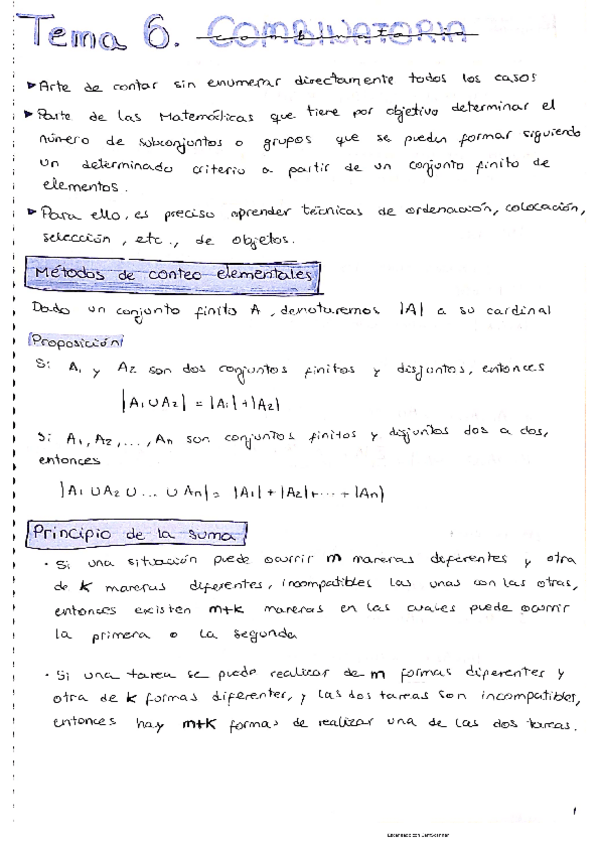 Tema 6. COMBINATORIA
▸ Arte de contar sin enumerar directamente todos los casos
▸ Parte de las Matemáticas que tiene por objetivo determinar el
número de subconjuntos o grupos que se pueden formar siguiendo
un determinado criterio a partir de un conjunto finito de
elementos.
▸ Para ello, es preciso aprender técnicas de ordenación, colocación,
selección, etc., de objetos.
Métodos de conteo elementales
Dado un conjunto finito A, denotaremos |A| a su cardinal
Proposición
Si A₁ y A₂ son dos conjuntos finitos y disjuntos, entonces
|A₁ ∪ A₂| = |A₁| + |A₂|
Si A₁, A₂, ..., An son conjuntos finitos y disjuntos dos a dos,
entonces
|A₁ ∪ A₂ ∪ ... ∪ An| = |A₁| + |A₂| + ... + |An|
Principio de la suma
· Si una situación puede ocurrir m maneras diferentes y otra
de k maneras diferentes, incompatibles las unas con las otras,
entonces existen m+k maneras en las cuales puede ocurrir
la primera o la segunda
· Si una tarea se puede realizar de m formas diferentes y
otra de k formas diferentes, y las dos tareas son incompatibles,
entonces hay m+k formas de realizar una de las dos tareas.
1
Escaneado con CamScanner